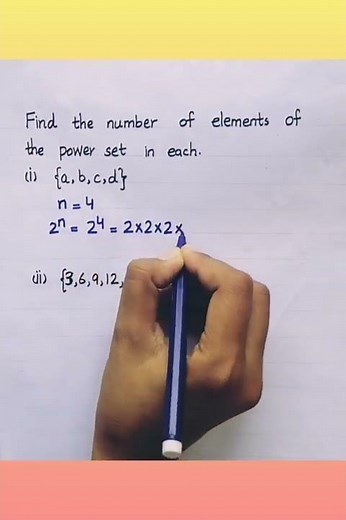 Find the number of elements of
the power set in each.
(i) {a, b, c, d}
n = 4
2ⁿ = 2⁴ = 2×2×2×
(ii) {3, 6, 9, 12,